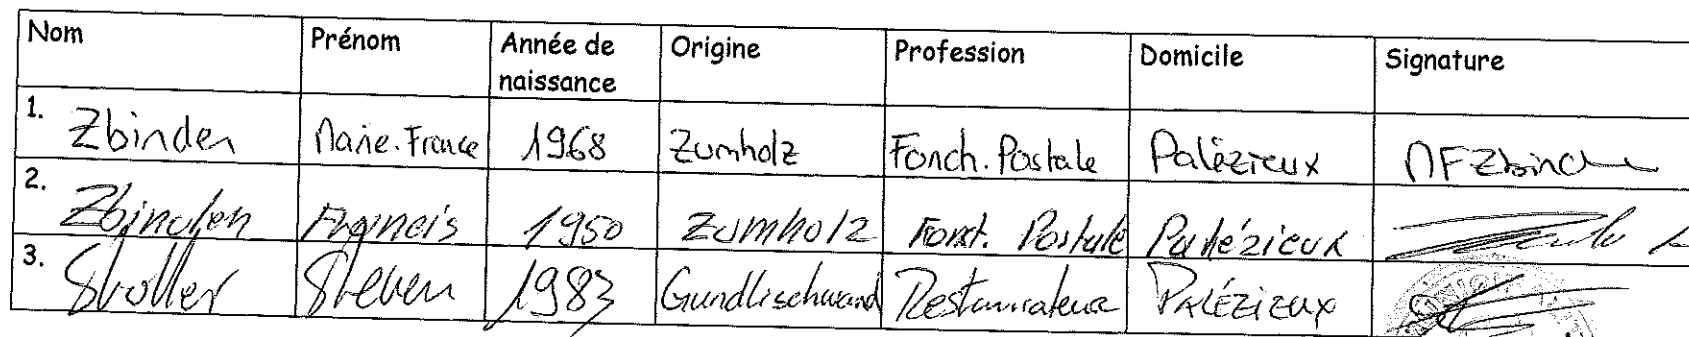 Nom Prénom Année de naissance Origine Profession Domicile Signature
1. Zbinden Marie.France 1968 Zumholz Fonct. Postale Palézieux MFZbinden
2. Zbinden Francis 1950 Zumholz Fonct. Postale Palézieux
3. Stoller Steven 1983 Gundlischwand Restaurateur Palézieux